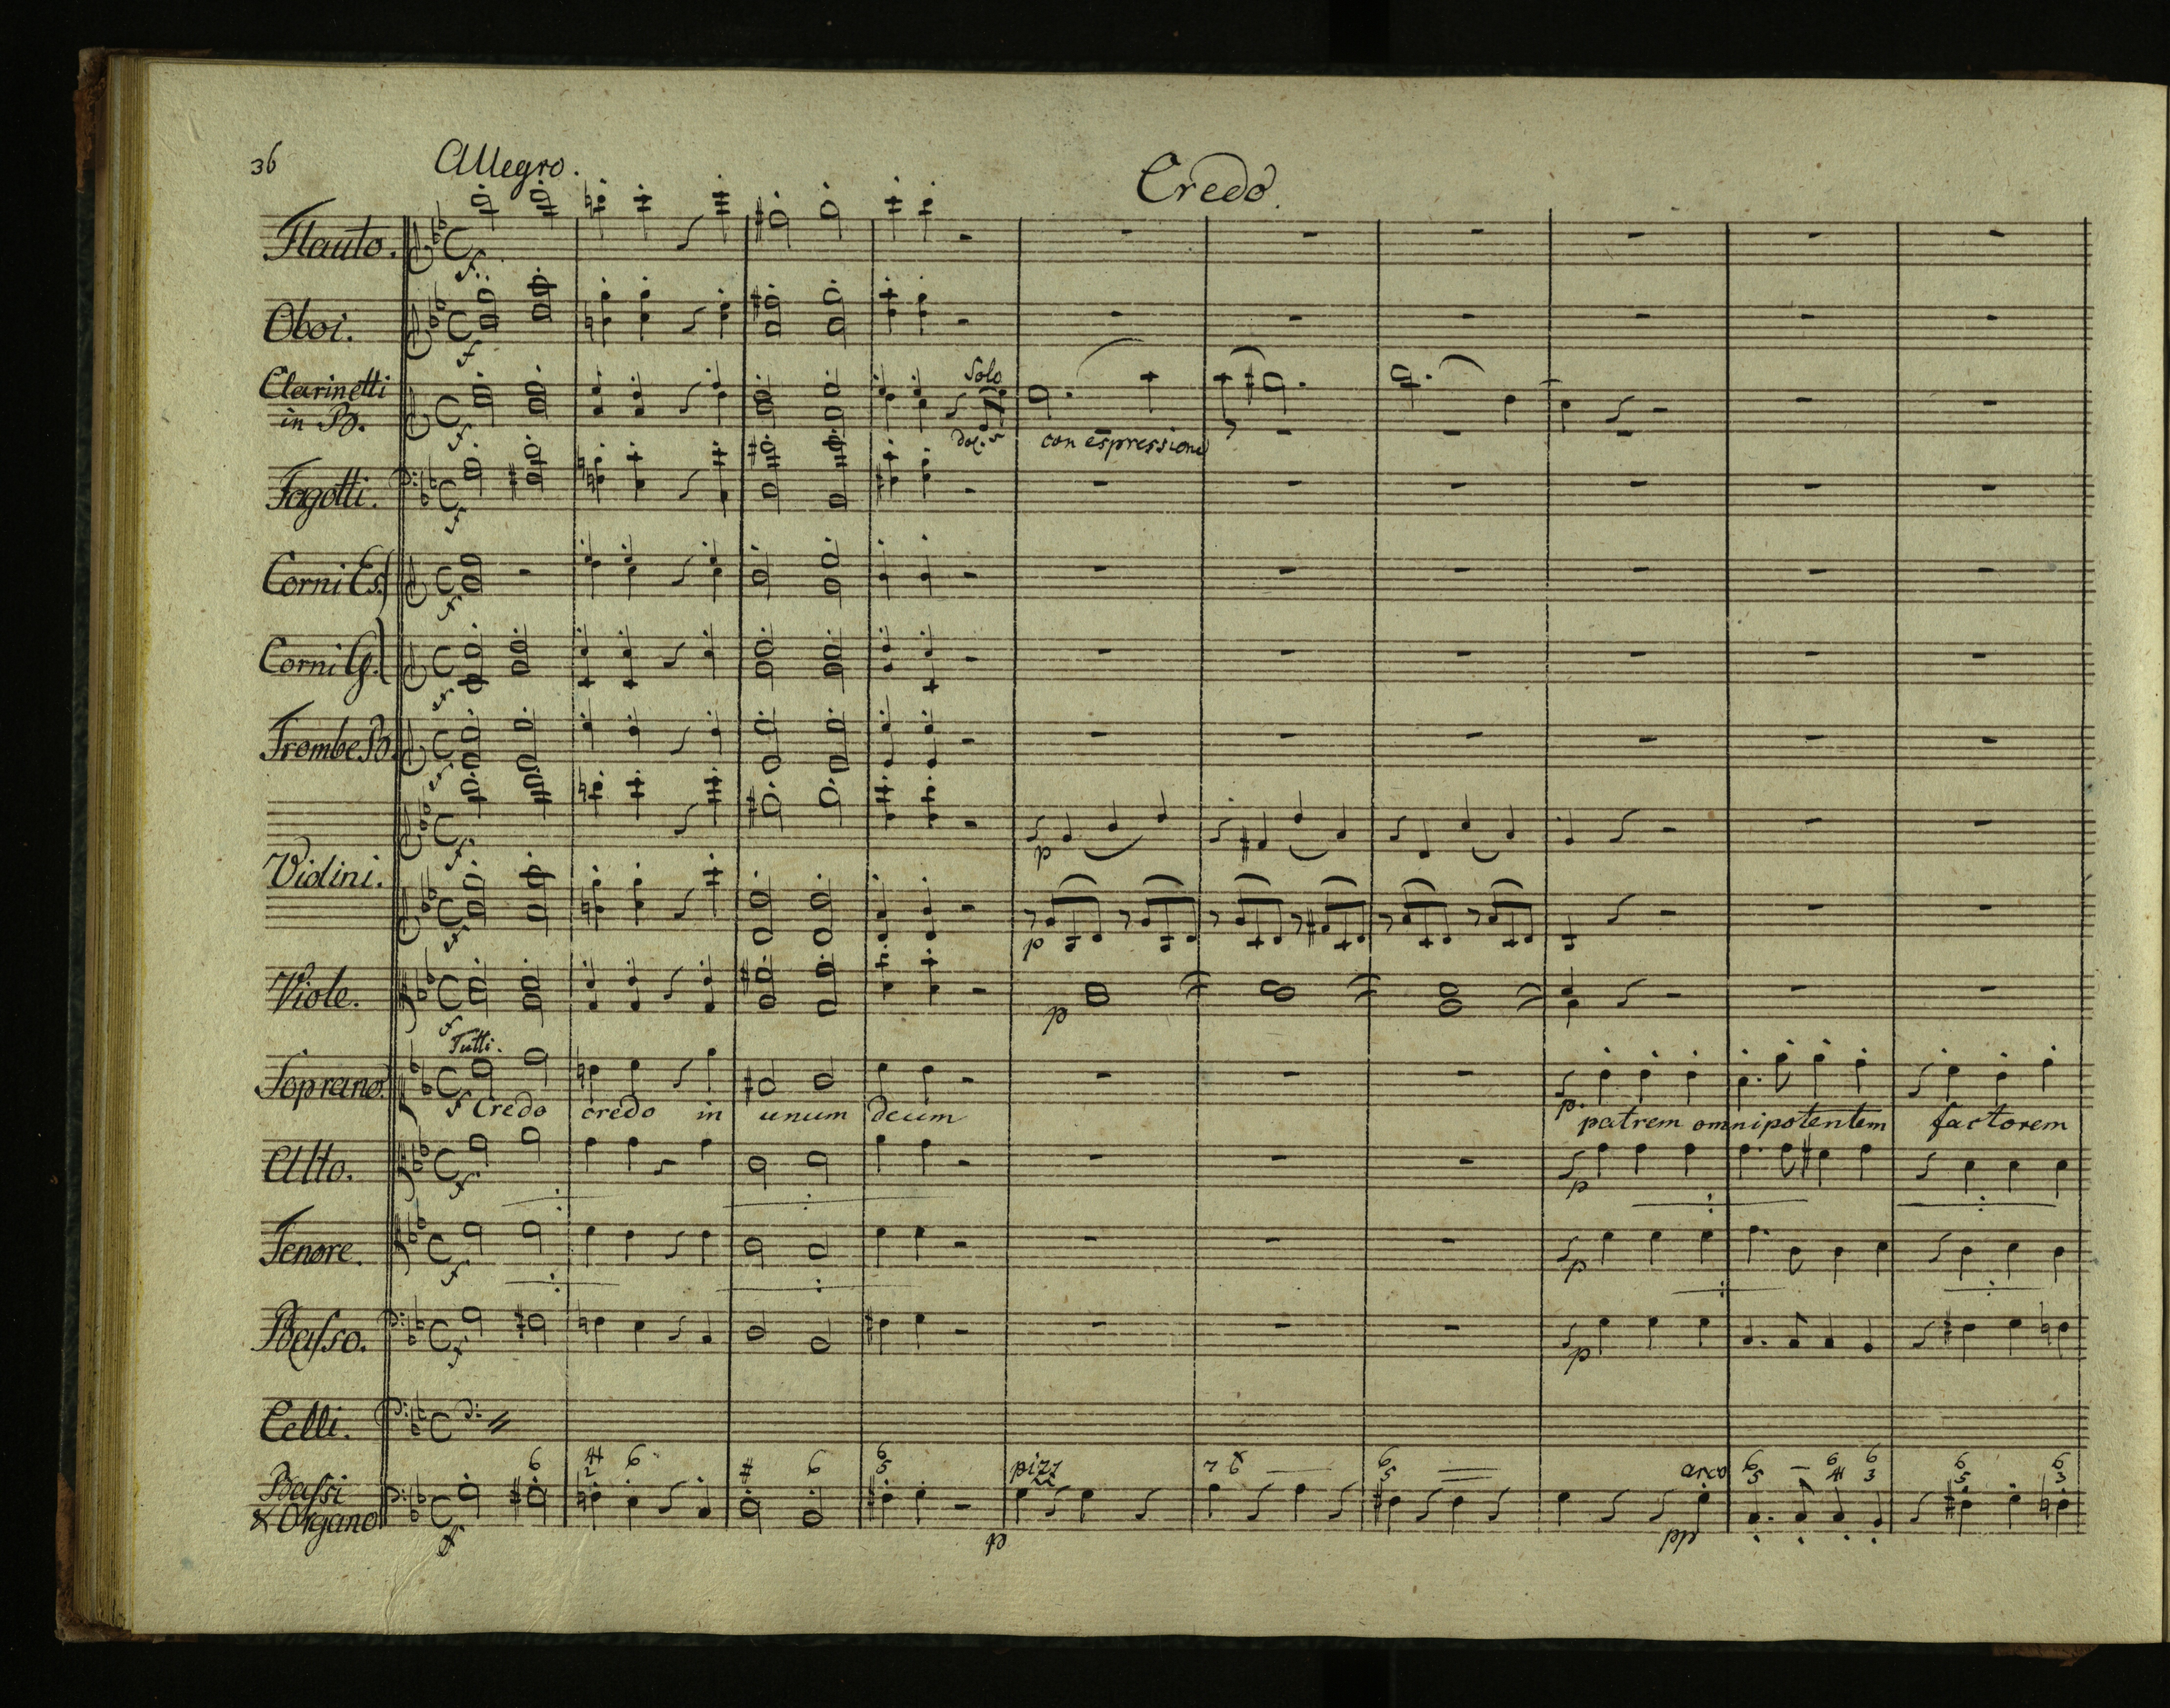 36
Allegro.
Credo.
Flauto.
f.
Oboi.
f
Clarinetti
in B.
f
Solo
dol.
con espressione
Fagotti.
f
Corni Es.
f
Corni G.
f
Trombe B.
f
Violini.
f
p
f
p
Viole.
f
p
Tutti.
Soprano.
f Credo credo in unum deum
p. patrem omnipotentem factorem
Alto.
f
p
Tenore.
f
p
Basso.
f
p
Celli.
6 4 6 # 6 6 pizz 7 8 6 arco 6 – 6 6 6 6
2 5 6 5 5 4 3 5 3
Bassi
& Organo
f
p
pp